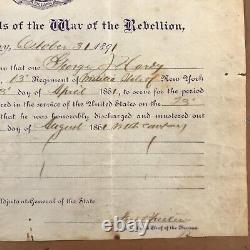 ds of the War of the Rebellion,
October 31 1891
that one George J. Hardy
13" Regiment of Militia Vols of New York
3" day of April 1861, to serve for the period
ered in the service of the United States on the 23"
that he was honorably discharged and mustered out
day of August 1861 with company
Adjutant-General of the State.
Chief of the Bureau